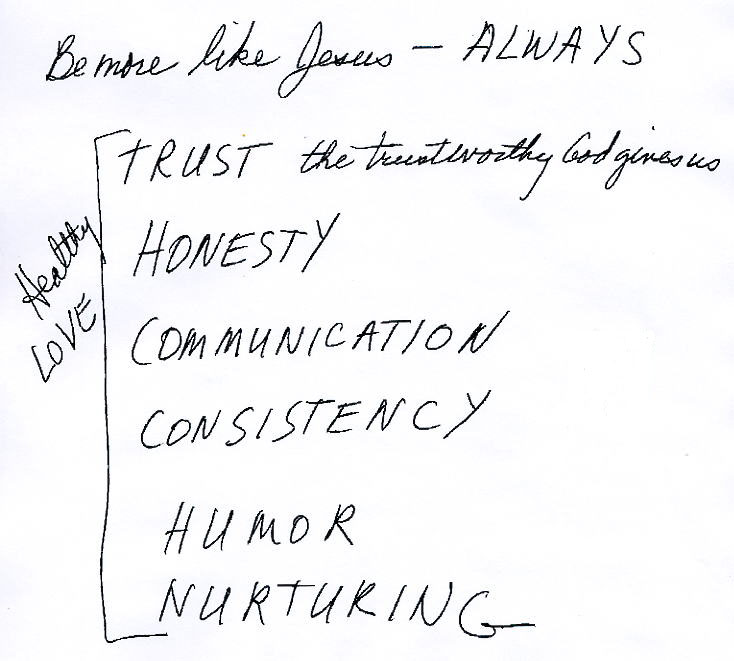 Be more like Jesus – ALWAYS
TRUST the trustworthy God gives us
Healthy
LOVE
HONESTY
COMMUNICATION
CONSISTENCY
HUMOR
NURTURING